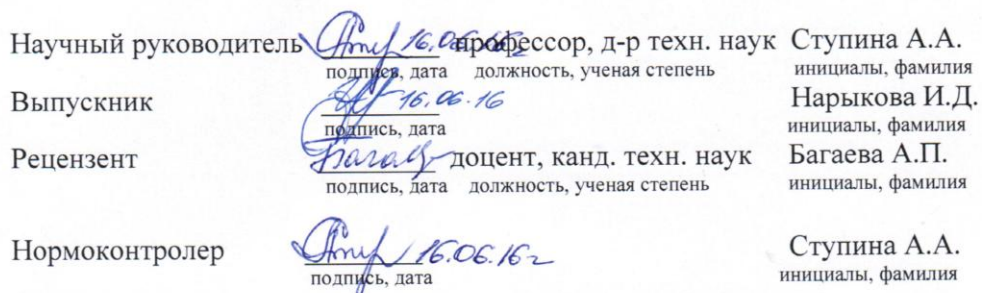 Научный руководитель 16.06.16г профессор, д-р техн. наук Ступина А.А.
подпись, дата должность, ученая степень инициалы, фамилия
Выпускник 16.06.16 Нарыкова И.Д.
подпись, дата инициалы, фамилия
Рецензент доцент, канд. техн. наук Багаева А.П.
подпись, дата должность, ученая степень инициалы, фамилия
Нормоконтролер 16.06.16г Ступина А.А.
подпись, дата инициалы, фамилия